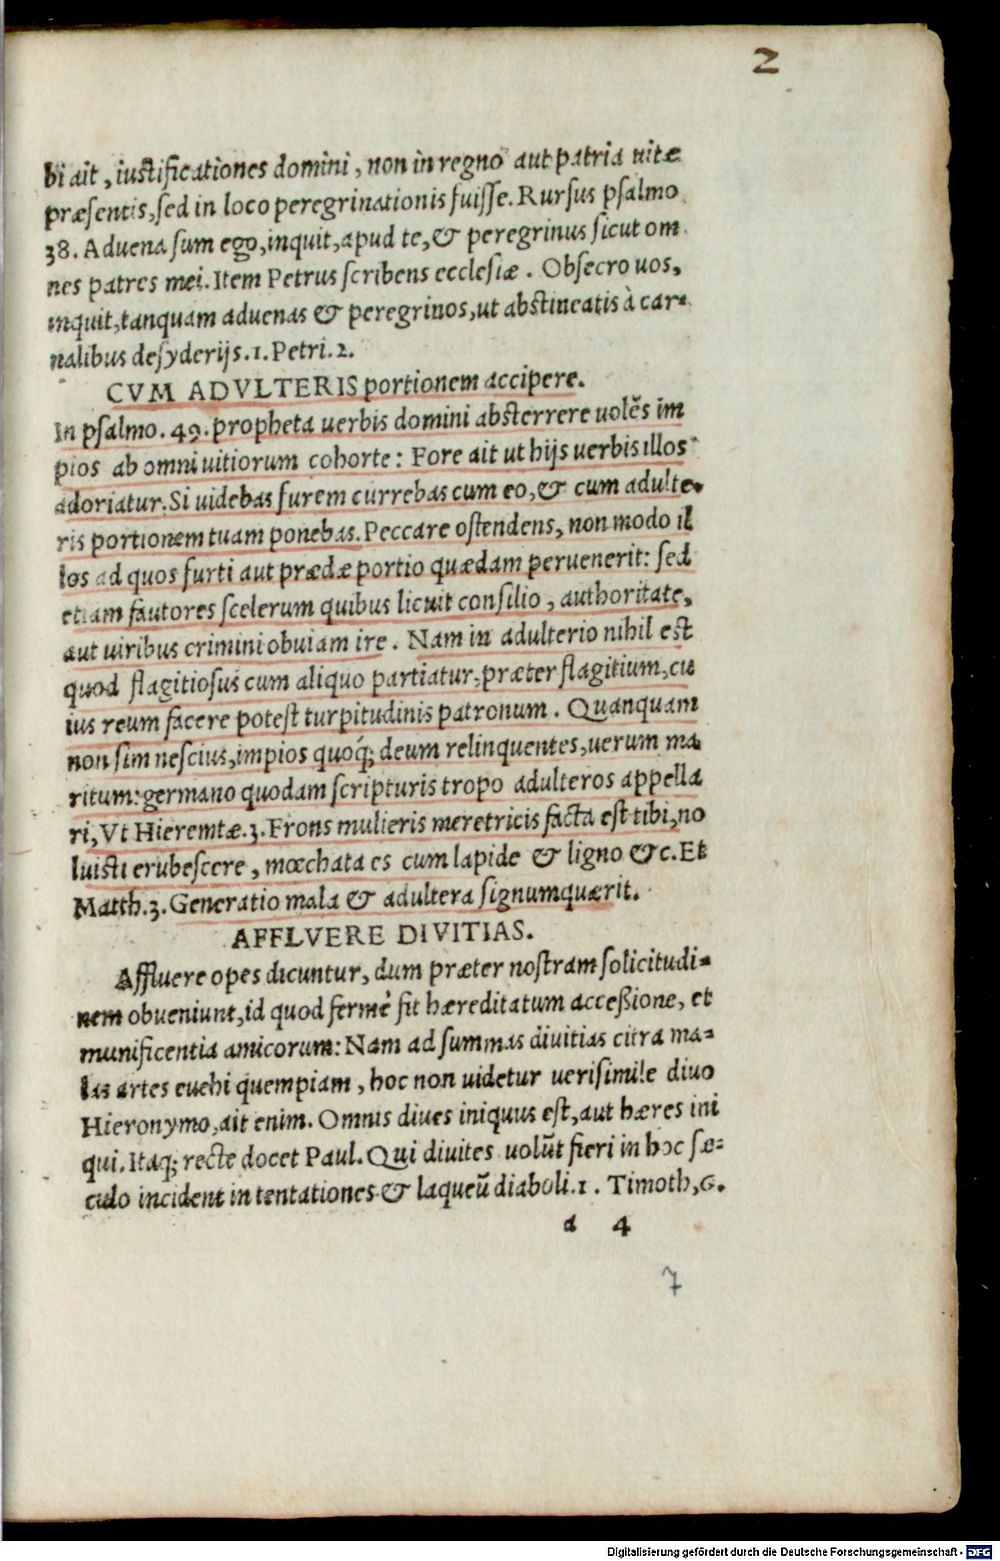 2
bi ait, iustificationes domini, non in regno aut patria uitæ
præsentis, sed in loco peregrinationis fuisse. Rursus psalmo
38. Aduena sum ego, inquit, apud te, & peregrinus sicut om
nes patres mei. Item Petrus scribens ecclesiæ. Obsecro uos,
inquit, tanquam aduenas & peregrinos, ut abstineatis à car-
nalibus desyderijs. 1. Petri. 2.
CVM ADVLTERIS portionem accipere.
In psalmo. 49. propheta uerbis domini absterrere uolẽs im
pios ab omni uitiorum cohorte: Fore ait ut hijs uerbis illos
adoriatur. Si uidebas furem currebas cum eo, & cum adulte-
ris portionem tuam ponebas. Peccare ostendens, non modo il
los ad quos furti aut prædæ portio quædam peruenerit: sed
etiam fautores scelerum quibus licuit consilio, authoritate,
aut uiribus crimini obuiam ire. Nam in adulterio nihil est
quod flagitiosus cum aliquo partiatur, præter flagitium, cu
ius reum facere potest turpitudinis patronum. Quanquam
non sim nescius, impios quoq; deum relinquentes, uerum ma
ritum: germano quodam scripturis tropo adulteros appella
ri, Vt Hieremiæ. 3. Frons mulieris meretricis facta est tibi, no
luisti erubescere, mœchata es cum lapide & ligno &c. Et
Matth. 3. Generatio mala & adultera signum quærit.
AFFLVERE DIVITIAS.
Affluere opes dicuntur, dum præter nostram solicitudi-
nem obueniunt, id quod fermè fit hæreditatum accessione, et
munificentia amicorum: Nam ad summas diuitias citra ma-
las artes euehi quempiam, hoc non uidetur uerisimile diuo
Hieronymo, ait enim. Omnis diues iniquus est, aut hæres ini
qui. Itaq; recte docet Paul. Qui diuites uolũt fieri in hoc sæ-
culo incident in tentationes & laqueũ diaboli. 1. Timoth, 6.
a 4
7
Digitalisierung gefördert durch die Deutsche Forschungsgemeinschaft - DFG